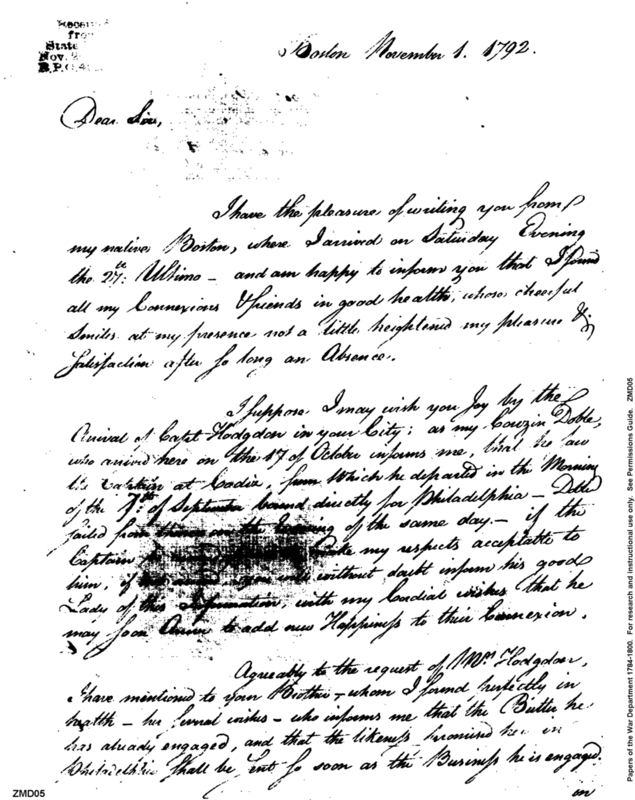 Received
from
State
Nov.
Boston November 1. 1792.
Dear Sir,
I have the pleasure of writing you from
my native Boston, where I arrived on Saturday Evening
the 27th. Ultimo – and am happy to inform you that I found
all my Connexions & friends in good health, whose cheerful
Smiles at my presence not a little heightened my pleasure &
Satisfaction after so long an Absence.
I suppose I may wish you Joy by the
Arrival of Capt Hodgdon in your City; as my Couzin Doble,
who arrived here on the 17 of October informs me, that he saw
the Captain at Cadia, from Which he departed in the Morning
of the 7th. of September bound directly for Philadelphia – Doble
sailed from thence on the Evening of the same day – if the
Captain make my respects acceptable to
him, if not you will without doubt inform his good
Lady of this Information, with my Cordial wishes that he
may soon Arrive to add new Happiness to their Connexion.
Agreably to the request of Mrs Hodgdon,
I have mentioned to your Brother – whom I found perfectly in
health – her several wishes – who informs me that the Butter he
has already engaged, and that the likeness promised her in
Philadelphia Shall be sent so soon as the Business he is engaged
in
ZMD05
Papers of the War Department 1784-1800. For research and instructional use only. See Permissions Guide. ZMD05